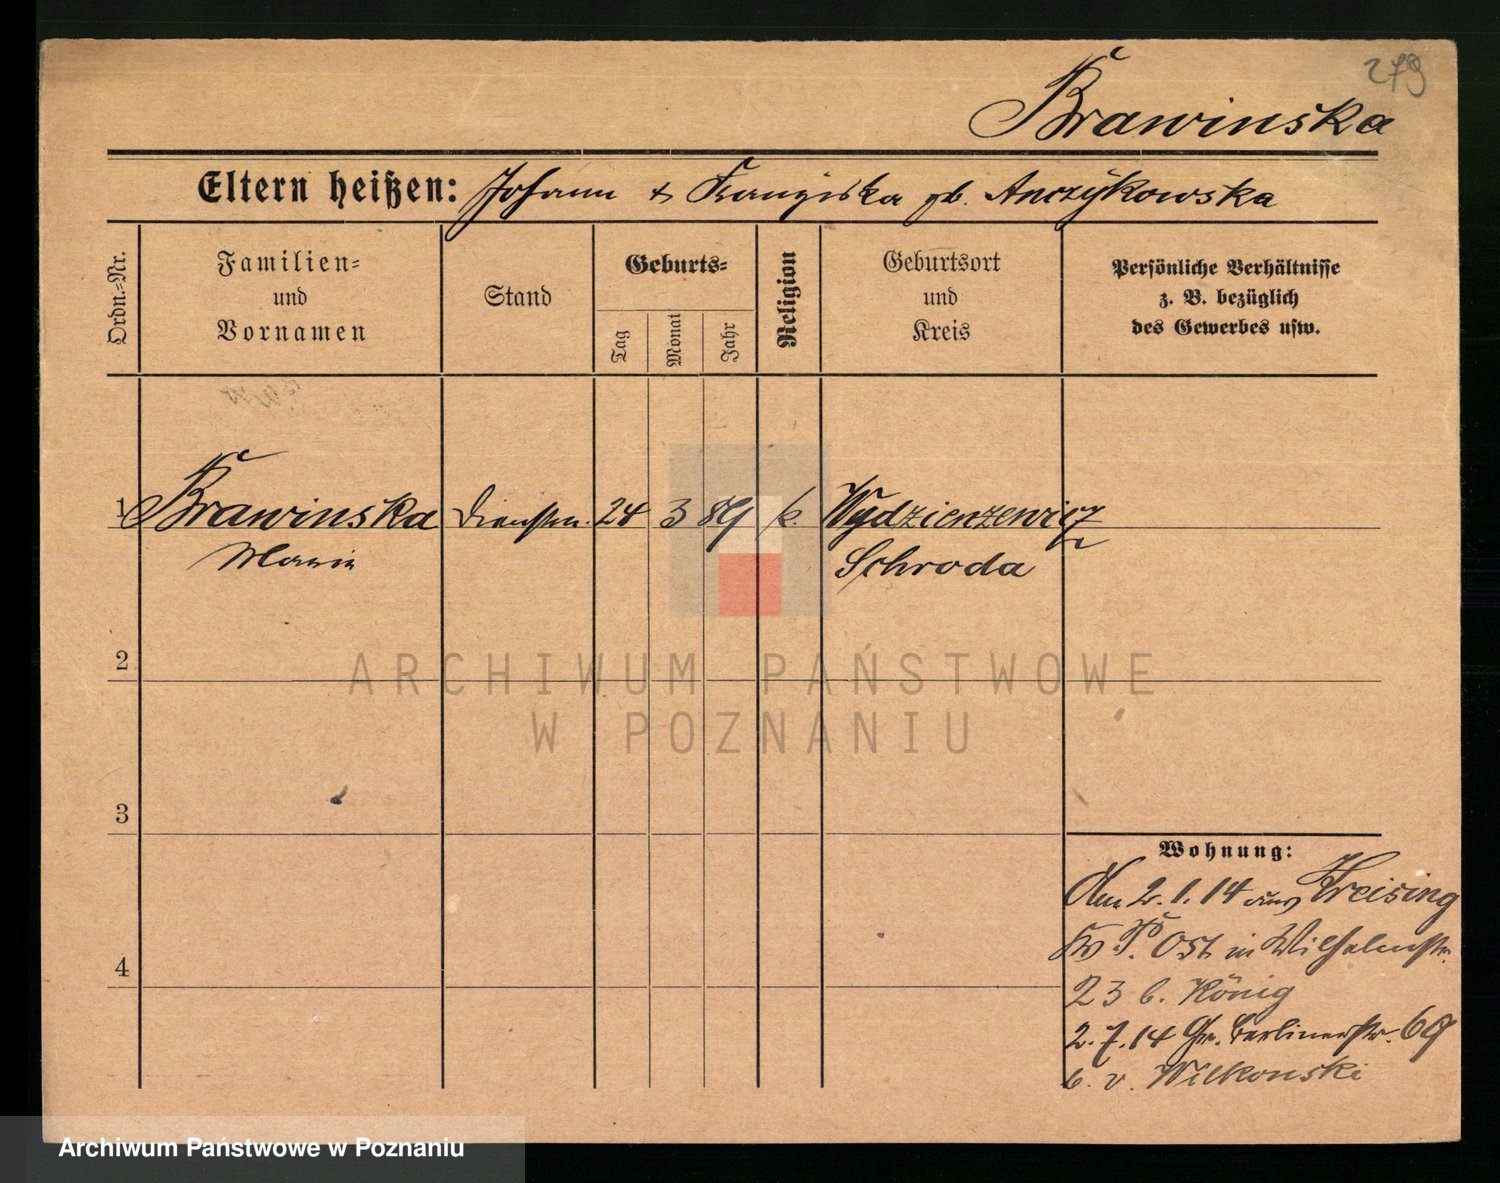 279
Brawinska
Eltern heißen: Johann + Franziska gb. Anczykowska
Ordn.-Nr.
Familien-
und
Vornamen
Stand
Geburts-
Tag
Monat
Jahr
Religion
Geburtsort
und
Kreis
Persönliche Verhältnisse
z. B. bezüglich
des Gewerbes usw.
1 Brawinska 24 3 89 k. Wydzierzewicz
Maria Schroda
2
3
4
Wohnung:
2.1.14 aus Kreising
Kr P. Ost in Wilhelmstr.
23 b. König
2.7.14 Gr. Berlinerstr. 69
b. v. Wilkonski
ARCHIWUM PAŃSTWOWE
W POZNANIU
Archiwum Państwowe w Poznaniu